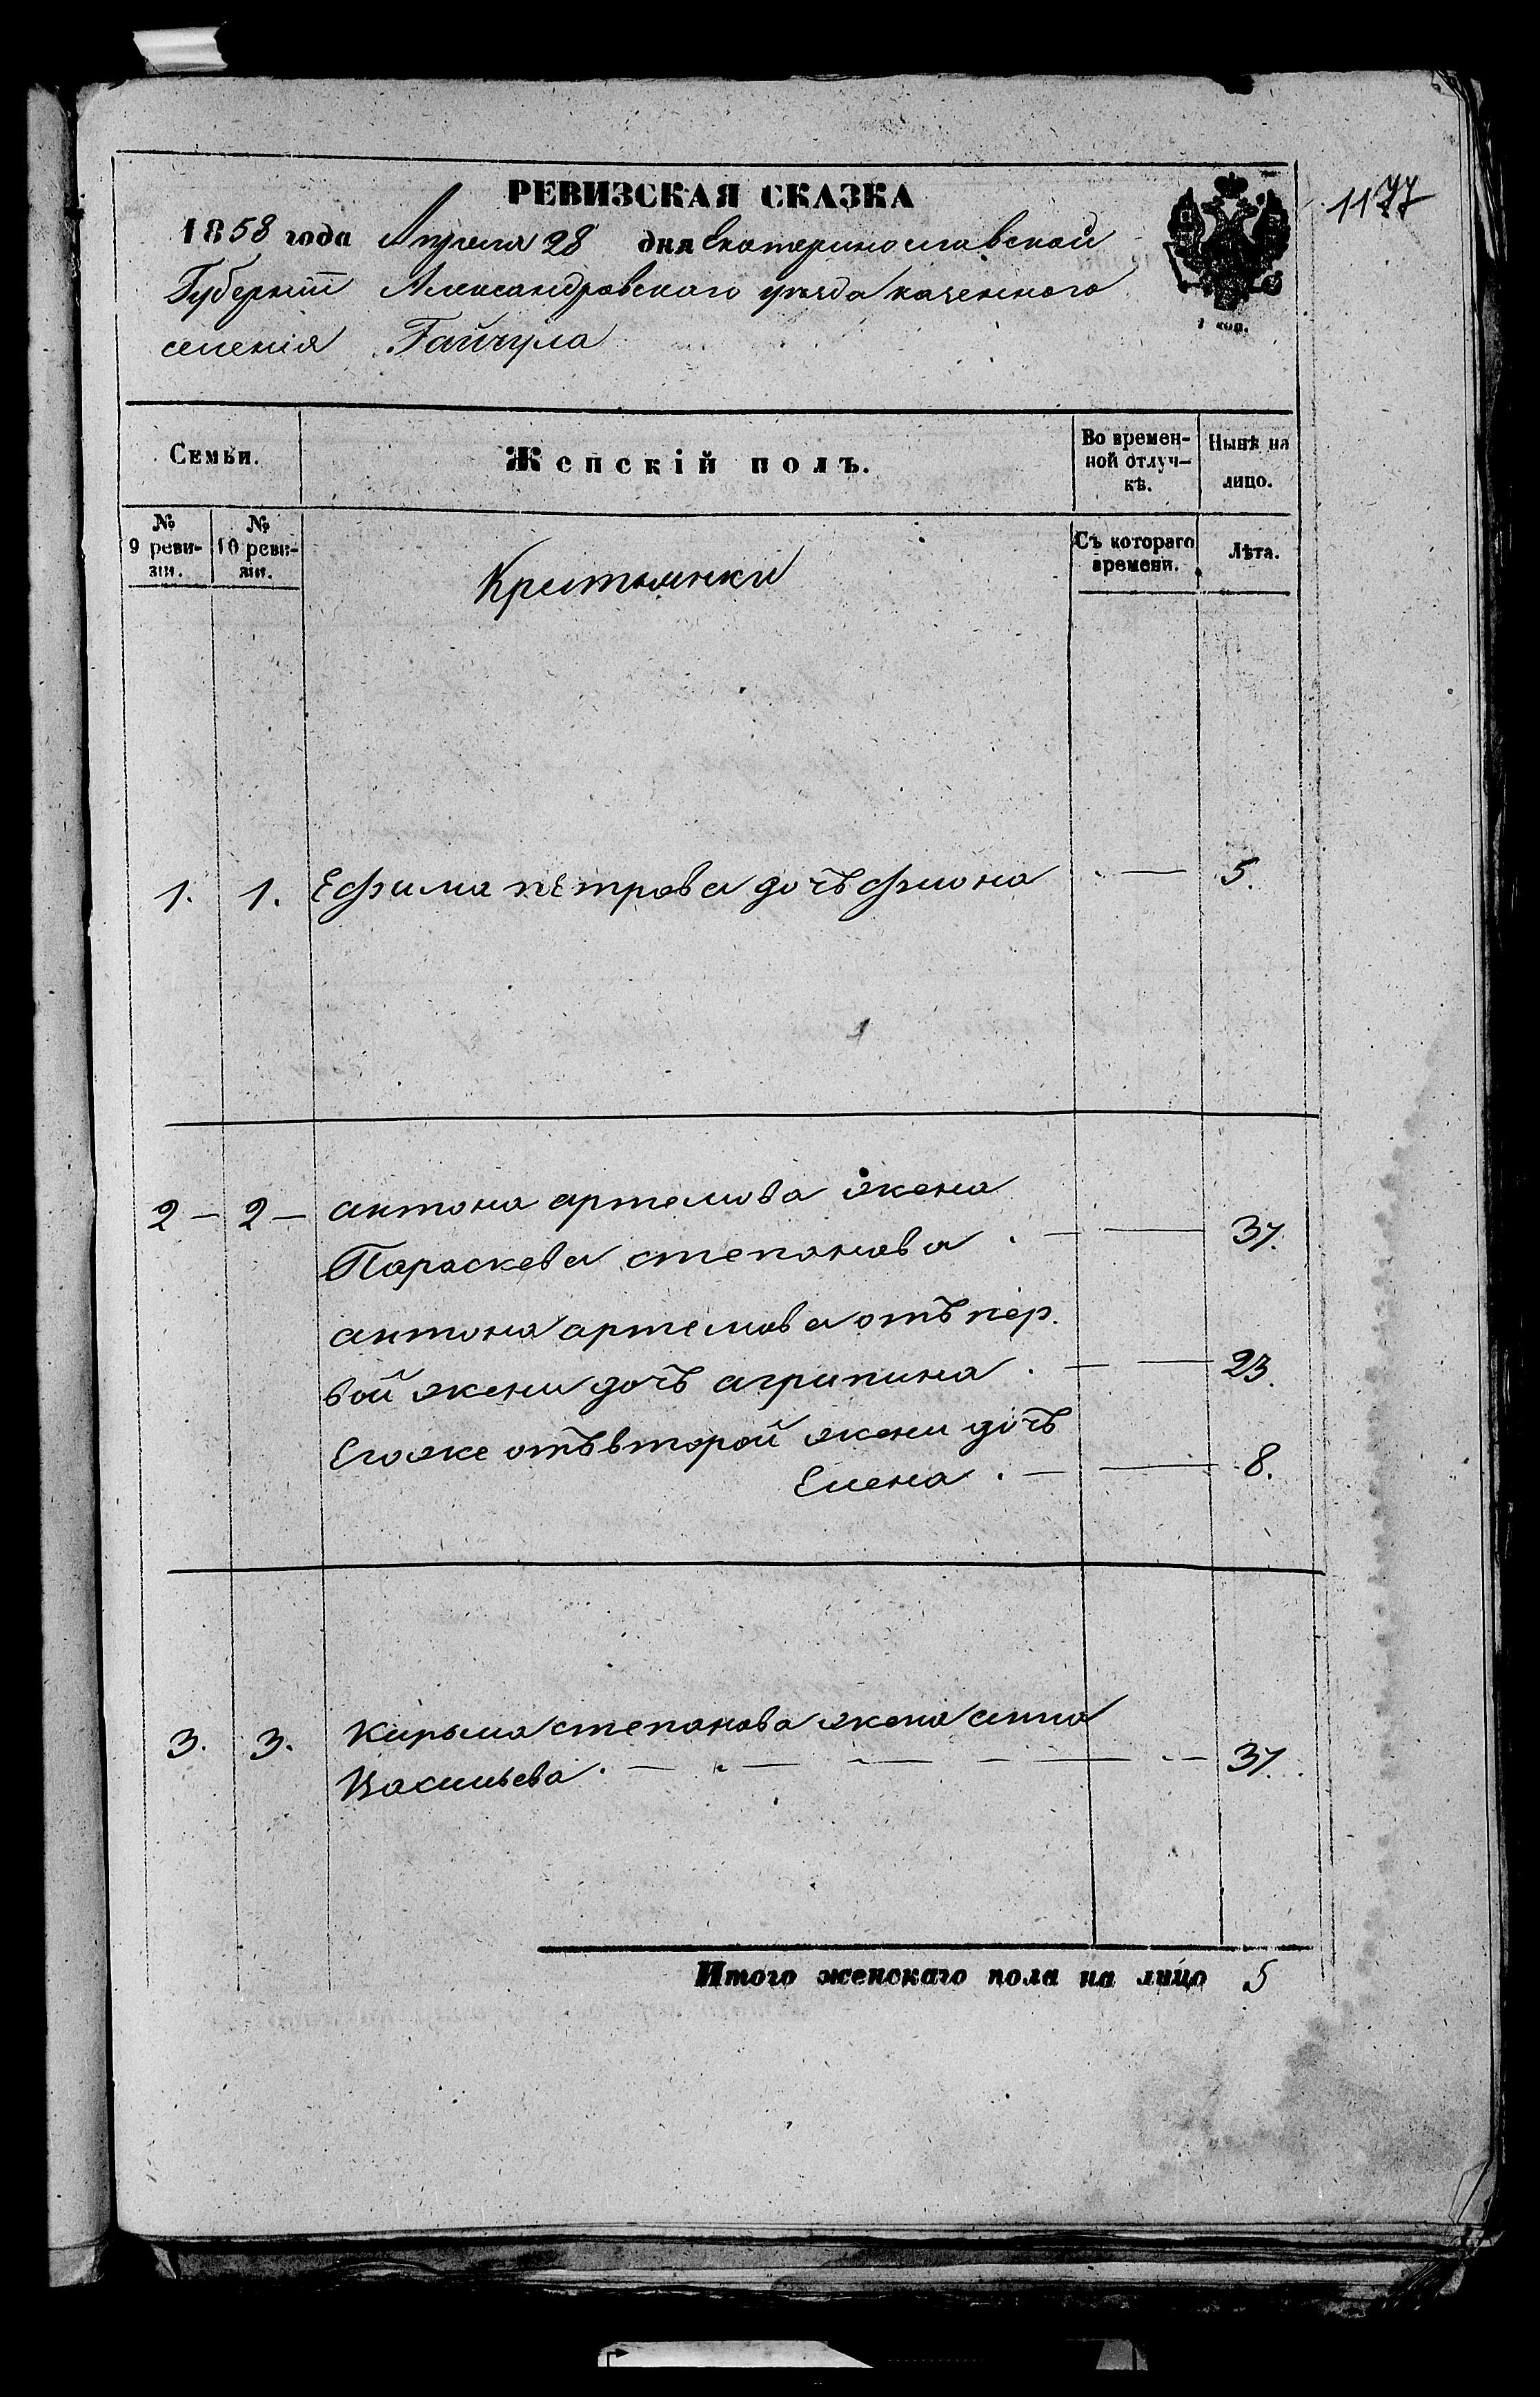 РЕВИЗСКАЯ СКАЗКА
1177
1858 года Апреля 28 дня Екатеринославской
Губернiи Александровского уѣзда казенного
селенiя Гайчула
1 коп.
Семьи.
Женскiй полъ.
Во времен-
ной отлуч-
кѣ.
Нынѣ на
лицо.
№
9 реви-
зiи.
№
10 реви-
зiи.
Съ котораго
времени.
Лѣта.
Крестьянки
1. 1. Ефима петрова дочъ фиона — 5.
2 — 2 — антона артемова жена
Параскева степанова . — — 37.
антона артемова отъ пер.
вой жени дочъ агрипина . — — 23.
Егоже отъ второй жени дочъ
Елена . — — 8.
3. 3. Кирыла степанова жена анна
Васильева . — — — — — 37.
Итого женскаго пола на лицо 5